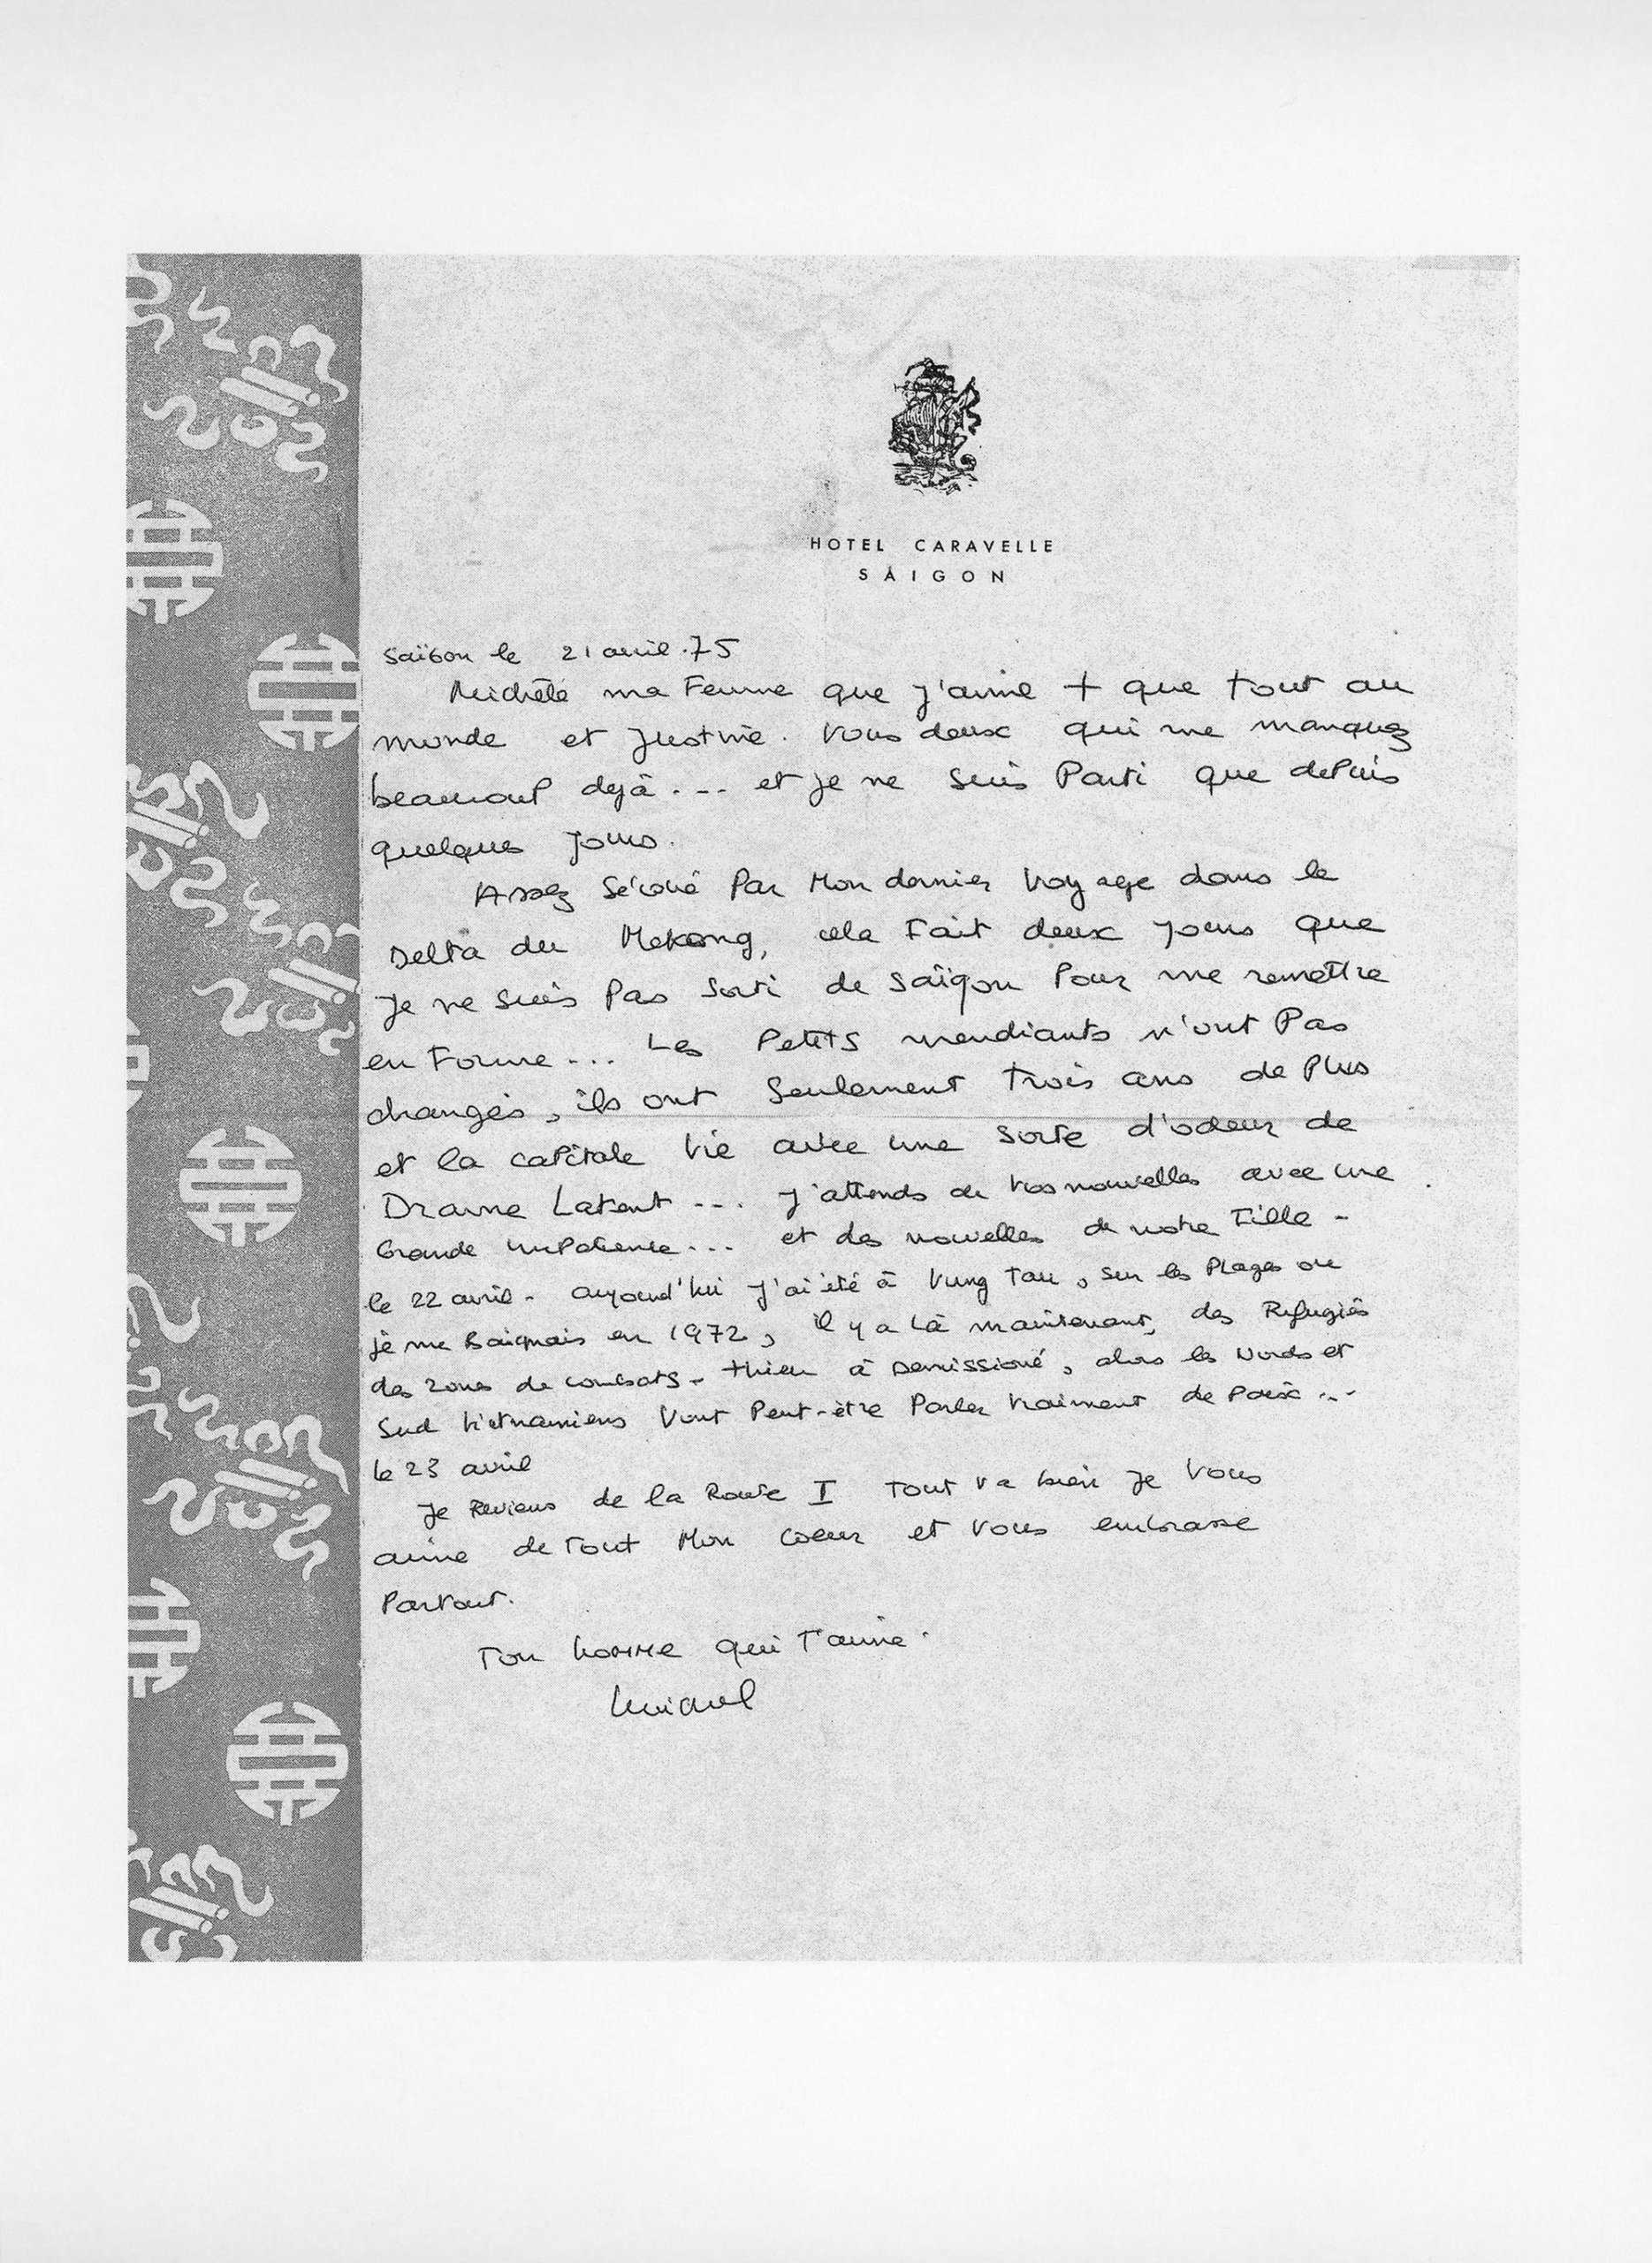 HOTEL CARAVELLE
SAIGON
Saïgon le 21 avril.75
Michèle ma Femme que j'aime + que tout au
monde et Justine. Vous deux qui me manquez
beaucoup dejà... et je ne suis Parti que depuis
quelques jours.
Assez Sécoué Par Mon dernier Voyage dans le
Delta du Mekong, cela Fait deux jours que
je ne suis Pas sorti de Saïgon Pour me remettre
en Forme... Les Petits mendiants n'ont Pas
changés, ils ont Seulement Trois ans de Plus
et la capitale Vie avec une sorte d'odeur de
Drame Latent... J'attends de vos nouvelles avec une
Grande impatience... et des nouvelles de notre Fille -
le 22 avril - aujourd'hui j'ai été à Vung Tau, sur les Plages ou
je me Baignais en 1972, il y a là maintenant, des Refugiés
des zones de combats - Thieu à Demissioné, alors les Nords et
Sud Vietnamiens Vont Peut-être Parler Vraiment de Paix...
le 23 avril
Je Reviens de la Route I Tout va bien je Vous
aime de Tout Mon coeur et Vous embrasse
Partout.
Ton homme qui T'aime.
Michel